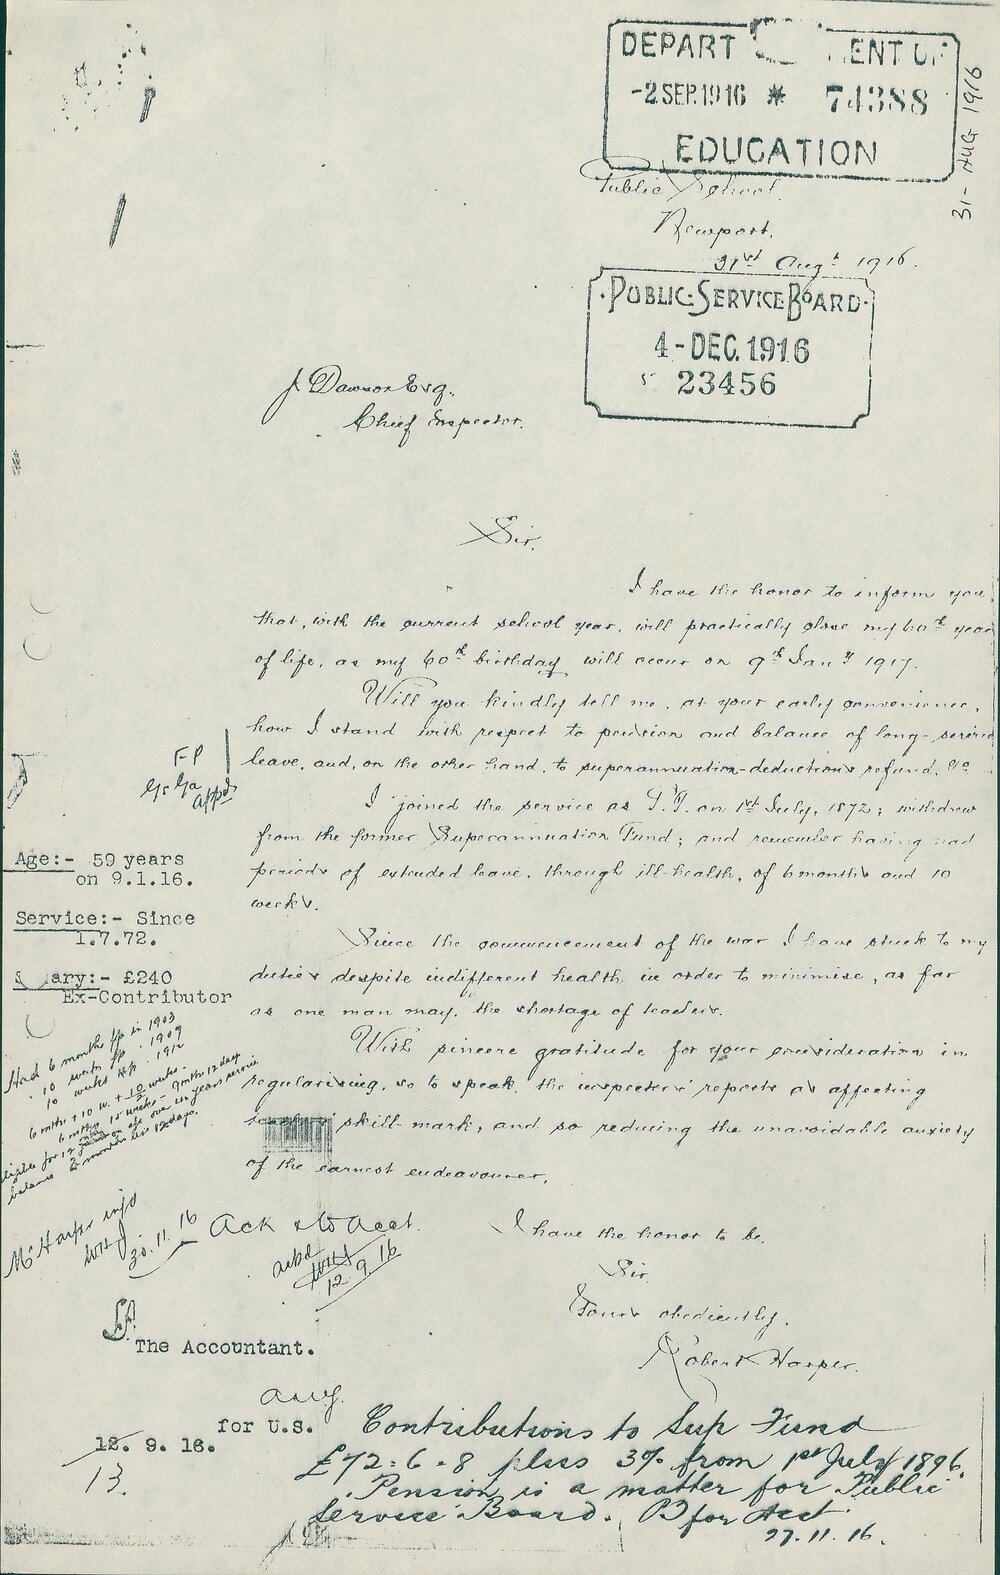 DEPART ENT OF
-2 SEP.1916 * 74388
EDUCATION
31- AUG 1916
Public School,
Newport.
31st Augt 1916.
PUBLIC SERVICE BOARD
4-DEC.1916
23456
J Dawson Esq.
Chief Inspector.
Sir,
I have the honor to inform you
that, with the current school year, will practically close my 60th year
of life, as my 60th birthday will occur on 9th Jany 1917.
Will you kindly tell me, at your early convenience,
how I stand with respect to pension and balance of long-service
leave, and, on the other hand, to superannuation-deductions refund, &c.
I joined the service as P.T. on 1st July, 1872; withdrew
from the former Superannuation Fund; and remember having had
periods of extended leave, through ill-health, of 6 months and 10
weeks.
Since the commencement of the war I have stuck to my
duties despite indifferent health, in order to minimise, as far
as one man may, the shortage of teachers.
With sincere gratitude for your consideration in
regularising, so to speak, the inspectors' reports as affecting
skill-mark, and so reducing the unavoidable anxiety
of the earnest endeavourer,
I have the honor to be,
Sir,
Yours obediently,
Robert Harper.
FP
appd
Age:- 59 years
on 9.1.16.
Service:- Since
1.7.72.
S ary:- £240
Ex-Contributor
Had 6 months f/p in 1903
10 weeks f/p 1909
10 weeks H/p 1912
6 mths + 10 w. + 10 weeks
6 mths 15 weeks - 9 mths 12 days
years service
balance 2 months less 12 days.
Mr Harper info
30.11.16
Ack & to Acct.
ackd
12.9.16
The Accountant.
for U.S.
12. 9. 16.
13.
Contributions to Sup Fund
£72-6-8 plus 3% from 1st July 1896.
Pension is a matter for Public
Service Board. for Acct
27.11.16.